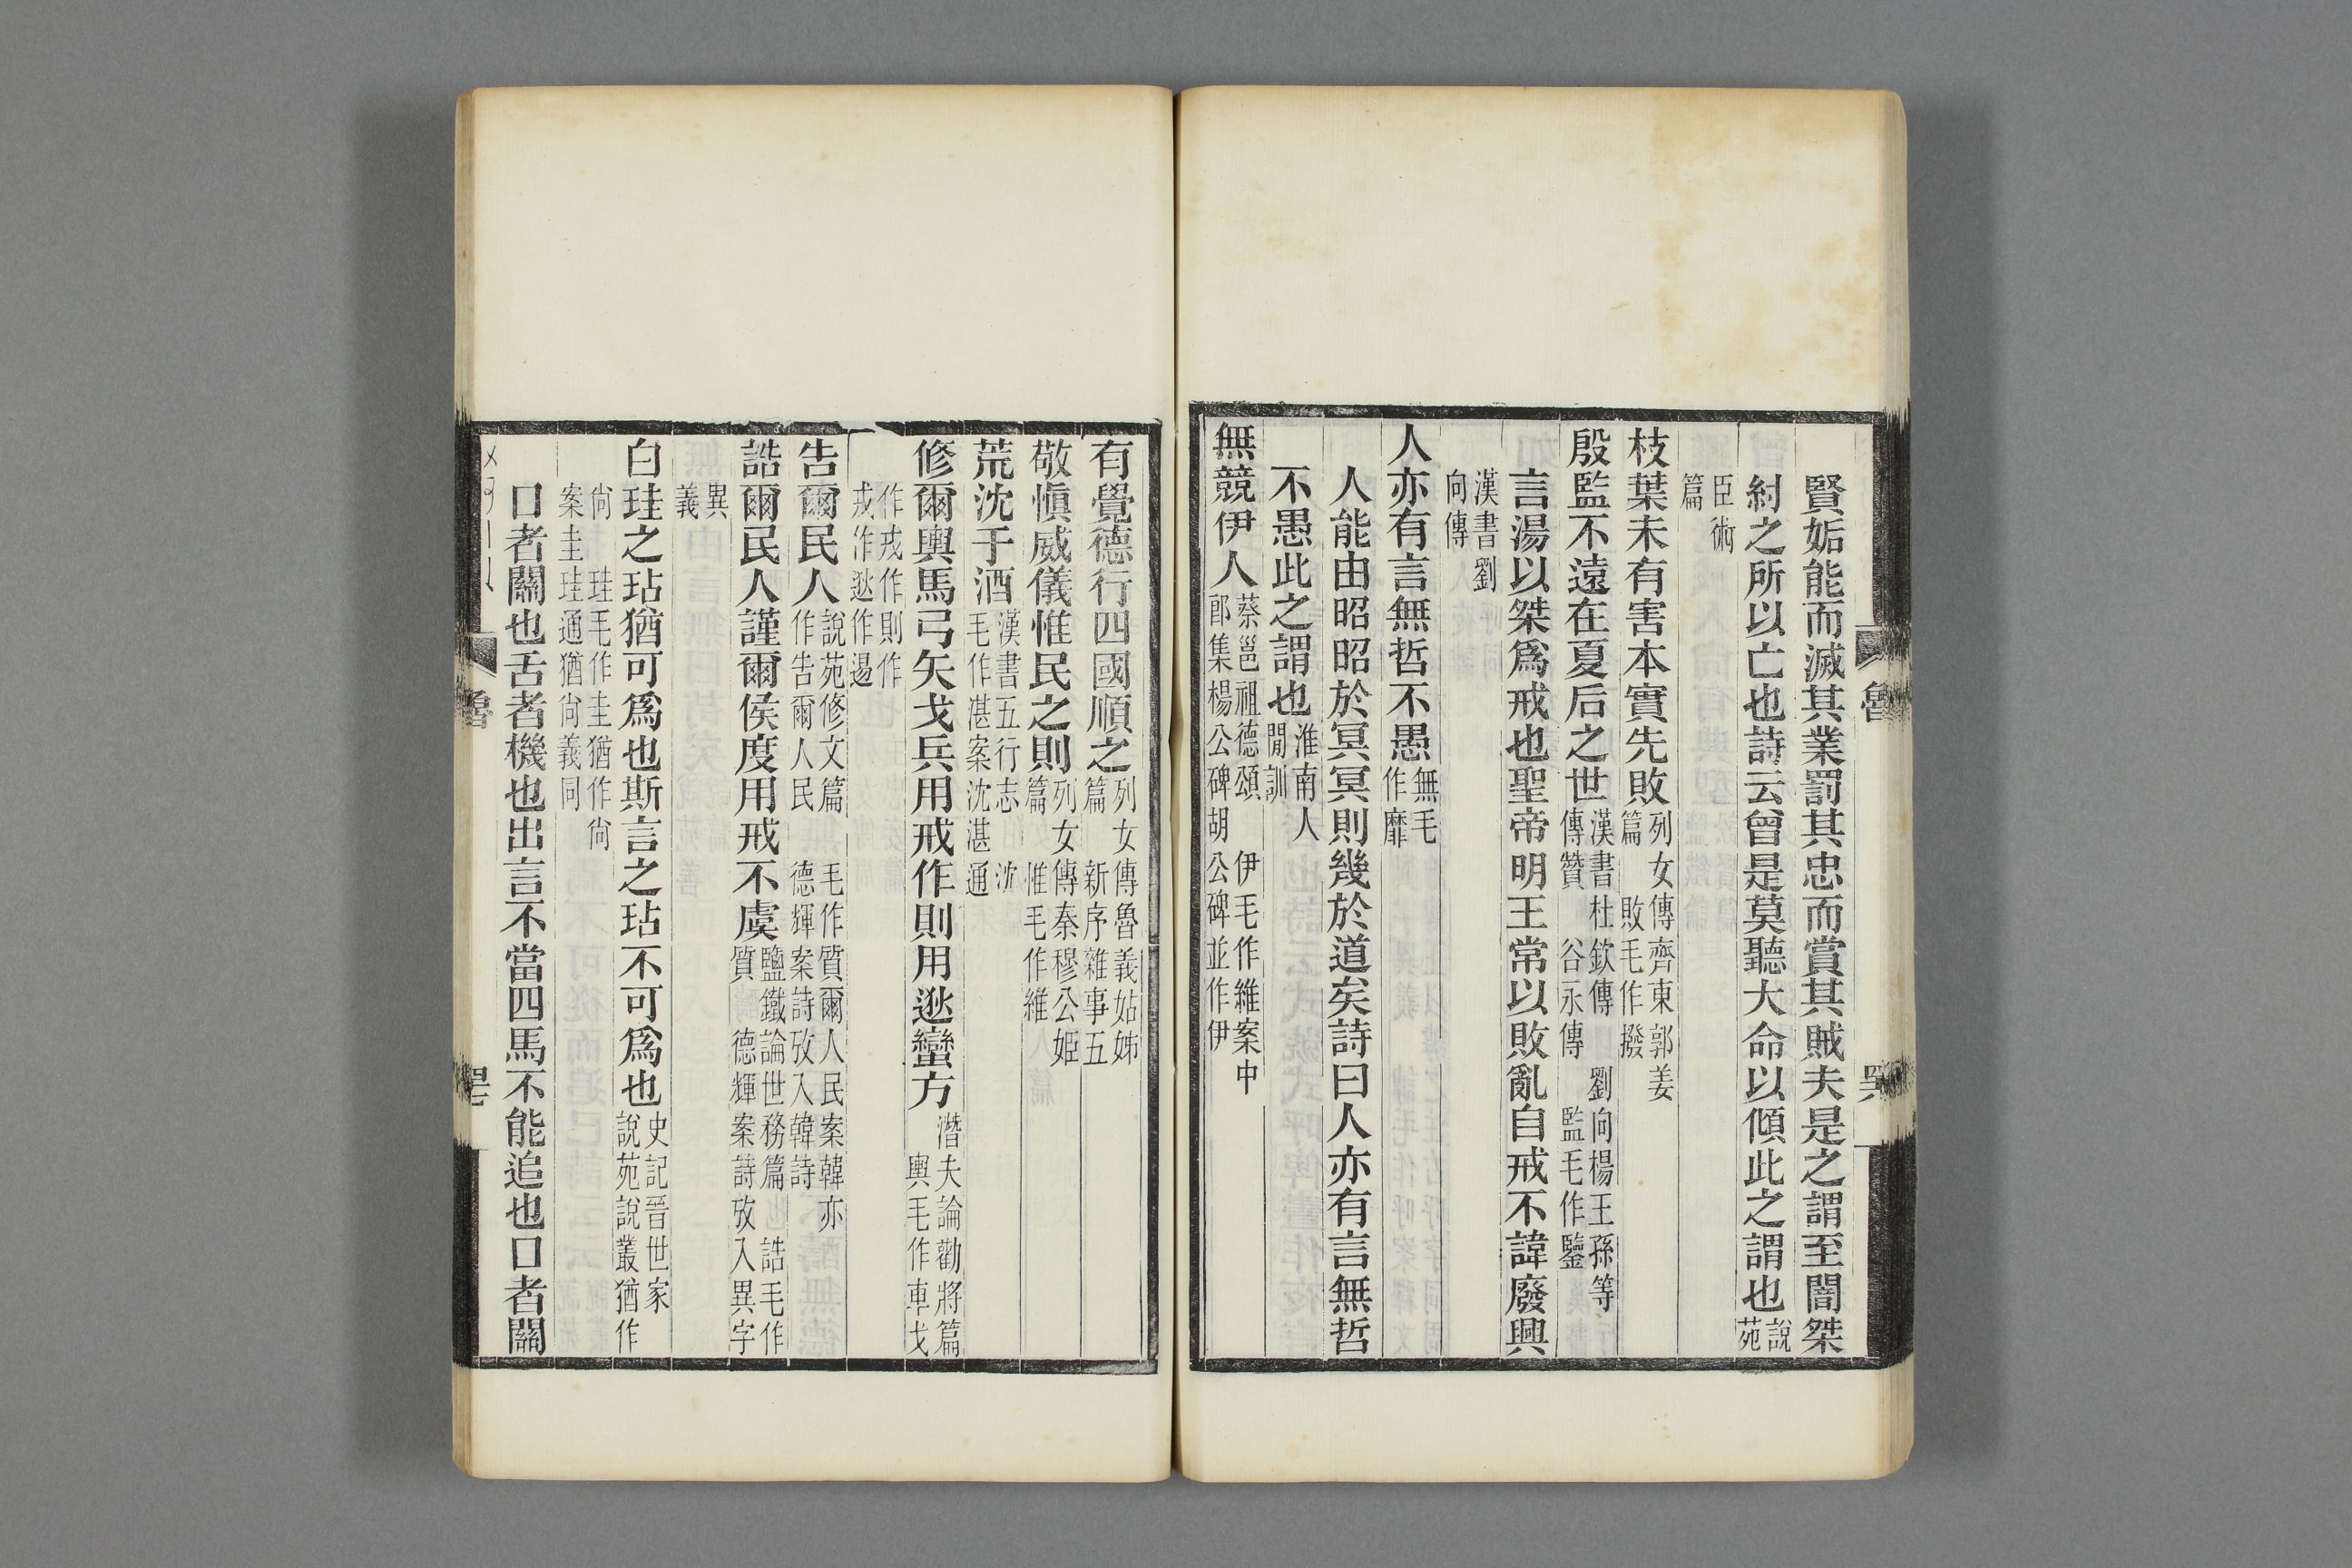 賢姤能而滅其業罰其忠而賞其賊夫是之謂至闇桀
紂之所以亡也詩云曾是莫聽大命以傾此之謂也說苑
臣術篇
枝葉未有害本實先敗列女傳齊東郭姜篇 敗毛作撥
殷監不遠在夏后之世漢書杜欽傳 劉向楊王孫等傳贊 谷永傳 監毛作鑒
言湯以桀爲戒也聖帝明王常以敗亂自戒不諱廢興
漢書劉向傳
人亦有言無哲不愚無毛作靡
人能由昭昭於冥冥則幾於道矣詩曰人亦有言無哲
不愚此之謂也淮南人閒訓
無競伊人蔡邕祖德頌 伊毛作維案中郎集楊公碑胡公碑並作伊
魯 罢
有覺德行四國順之列女傳魯義姑姊篇 新序雜事五
敬愼威儀惟民之則列女傳秦穆公姬篇 惟毛作維
荒沈于酒漢書五行志 沈毛作湛案沈湛通
修爾輿馬弓矢戈兵用戒作則用逖蠻方潛夫論勸將篇 輿毛作車戈
作戎作則作戎作逖作逷
告爾民人說苑修文篇 毛作質爾人民案韓亦作告爾人民 德輝案詩攷入韓詩
誥爾民人謹爾侯度用戒不虞鹽鐵論世務篇 誥毛作質 德輝案詩攷入異字
異義
白珪之玷猶可爲也斯言之玷不可爲也史記晉世家 說苑說叢猶作
尙 珪毛作圭猶作尙案圭珪通猶尙義同
口者關也舌者機也出言不當四馬不能追也口者關
魯